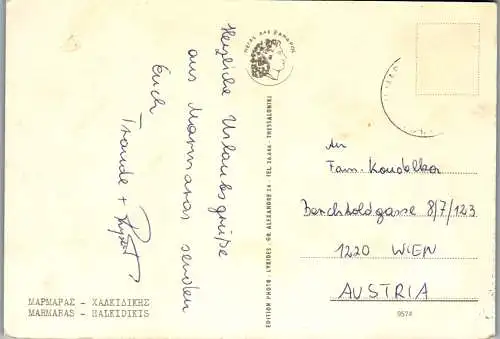 Herzliche Urlaubsgrüße
aus Marmaras senden
Euch
Traude +
ΜΑΡΜΑΡΑΣ - ΧΑΛΚΙΔΙΚΗΣ
MARMARAS - HALKIDIKIS
ΜΕΓΑΣ ΑΛΕΞΑΝΔΡΟΣ
EDITION PHOTO - LYRIDES - GR. ALEXANDRE 24 - TEL. 26.666 - THESSALONIKI
An
Fam. Koudelka
Berchtoldgasse 8/7/123
1220 WIEN
AUSTRIA
9574